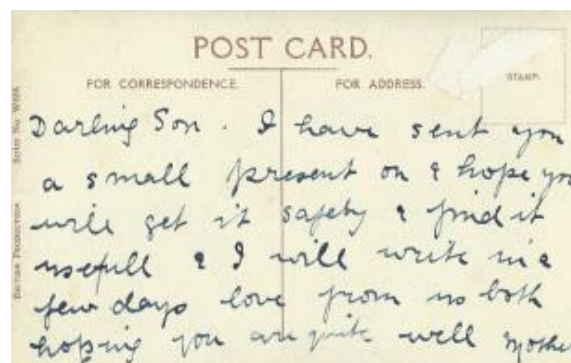 POST CARD.
FOR CORRESPONDENCE.
FOR ADDRESS.
STAMP.
BRITISH PRODUCTION
Series No. W898
Darling Son. I have sent you
a small present on & hope you
will get it safety & find it
usefull & I will write in a
few days love from us both
hoping you are quite well Mother